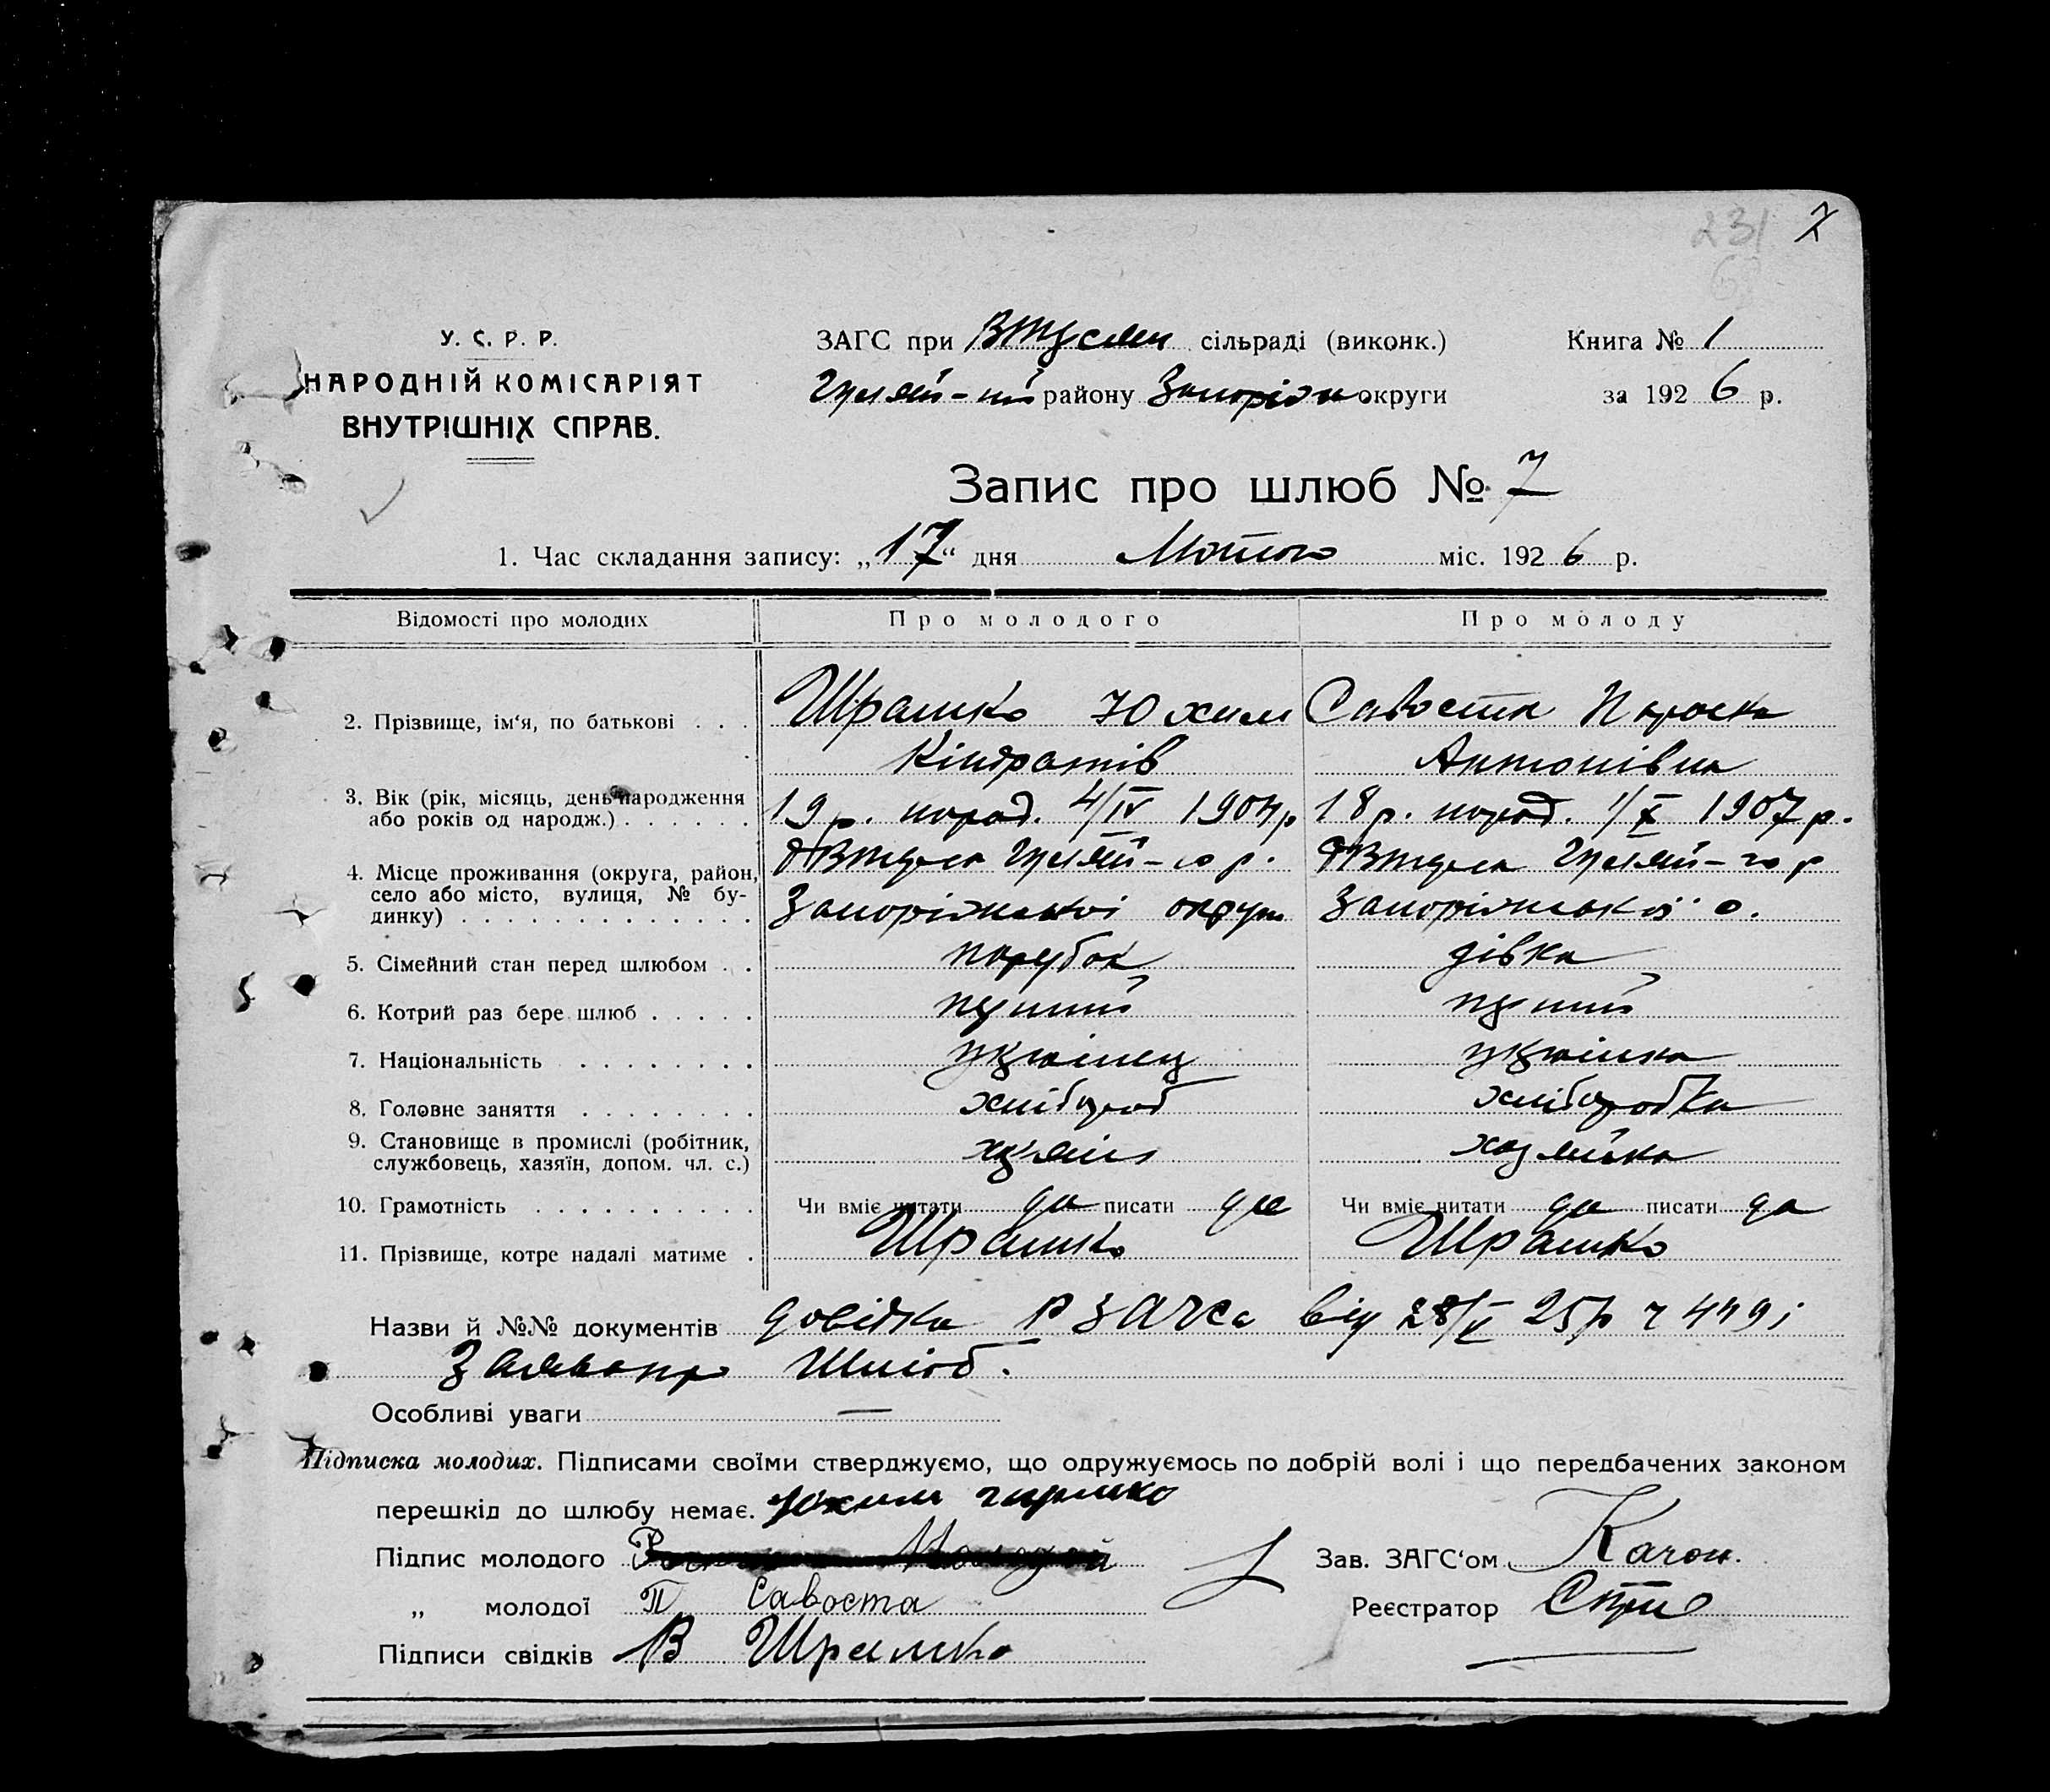 231 7
У. С. Р. Р.
НАРОДНІЙ КОМІСАРІЯТ
ВНУТРІШНІХ СПРАВ.
ЗАГС при сільраді (виконк.) Книга № 1
району Запоріж округи за 192 6 р.
Запис про шлюб № 7
1. Час складання запису: „17“ дня Лютого міс. 192 6 р.
Відомості про молодих Про молодого Про молоду
2. Прізвище, ім‘я, по батькові . . . Шрамко Юхим Савоста Параска
Кіндратів Антонівна
3. Вік (рік, місяць, день народження
або років од народж.) . . . . . . 19 р. народ. 4/IV 190 р 18 р. народ. 1/X 1907 р.
4. Місце проживання (округа, район,
село або місто, вулиця, № бу-
динку) . . . . . . . . . . . . . Запоріжської округи Запоріжської о.
5. Сімейний стан перед шлюбом . . парубок дівка
6. Котрий раз бере шлюб . . . . . перший перший
7. Національність . . . . . . . . українец українка
8. Головне заняття . . . . . . . . хлібороб хліборобка
9. Становище в промислі (робітник,
службовець, хазяїн, допом. чл. с.) хазяїн хазяйка
10. Грамотність . . . . . . . . . . Чи вміє читати да писати да Чи вміє читати да писати да
11. Прізвище, котре надалі матиме . Шрамко Шрамко
Назви й №№ документів довідка РЗАГСа від 28/V 25р ч 449 і
Заява про шлюб.
Особливі уваги —
Підписка молодих. Підписами своїми стверджуємо, що одружуємось по добрій волі і що передбачених законом
перешкід до шлюбу немає. Юхим
Підпис молодого Зав. ЗАГС‘ом
„ молодої П Савоста Реєстратор
Підписи свідків В Шрамко